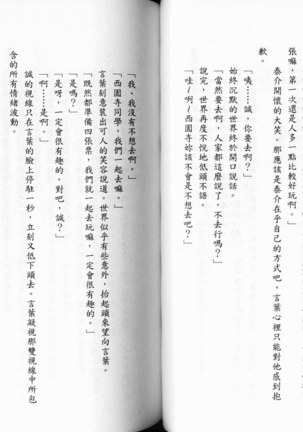 張嘛，第一次還是人多一點比較好玩啊。」
泰介開懷的大笑。那應該是泰介在乎自己的方式吧，言葉心裡只能對他感到抱
歉。
「咦……誠，你要去？」
始終沉默的世界終於開口說話。
「當然要去的啊，人家都這麼說了，不去行嗎？」
說完，世界再度不悅地低頭不語。
「哇～啊～西園寺妳該不會是不想去吧？」
「我、我沒有不想去啊。」
「西園寺同學，我們一起去嘛。」
言葉刻意裝出可人的笑容說道。世界似乎有些意外，抬起頭來望向言葉。
「既然都準備四張票，我們就一起去玩嘛，一定會很有趣的。」
「是嗎？」
「是呀，一定會很有趣的。對吧，誠？」
「啊……是啊。」
誠的視線只在言葉的臉上停駐一秒，立刻又低下頭去。言葉凝視那雙視線中所包
含的所有情緒波動。